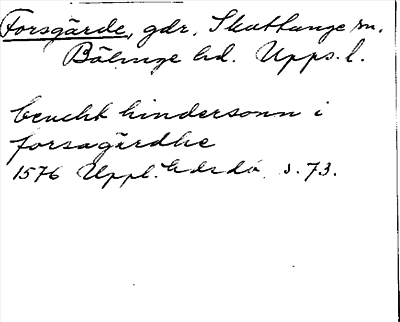 Forsgärde, gdr, Skuttunge sn.
Bälinge hd. Upps. l.
benckt hindersonn i
forsagärdhe
1576 Uppl. hdrdó s. 73.